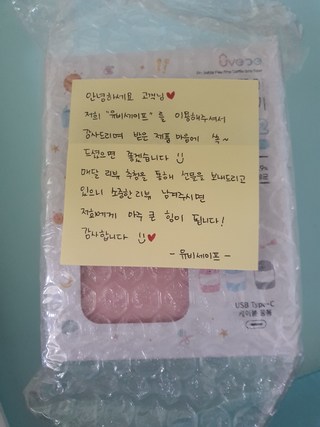 안녕하세요 고객님♥
저희 "유비세이프"를 이용해주셔서
감사드리며 받은 제품 마음에 쏙~
드셨으면 좋겠습니다
매달 리뷰 추첨을 통해 선물을 보내드리고
있으니 소중한 리뷰 남겨주시면
저희에게 아주 큰 힘이 됩니다!
감사합니다 ♥
- 유비세이프 -
USB Type-C
케이블 용품